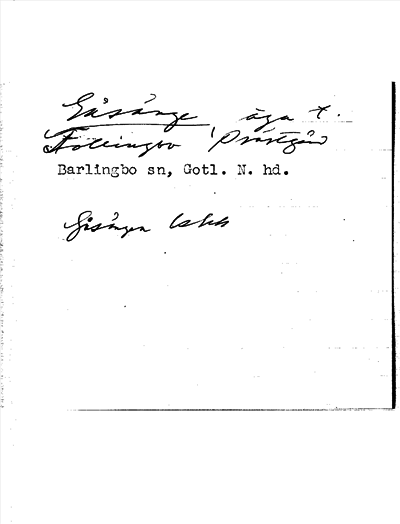 Gåsänge äga t.
Follingbo Prästgård
Barlingbo sn, Gotl. N. hd.
Gisängen